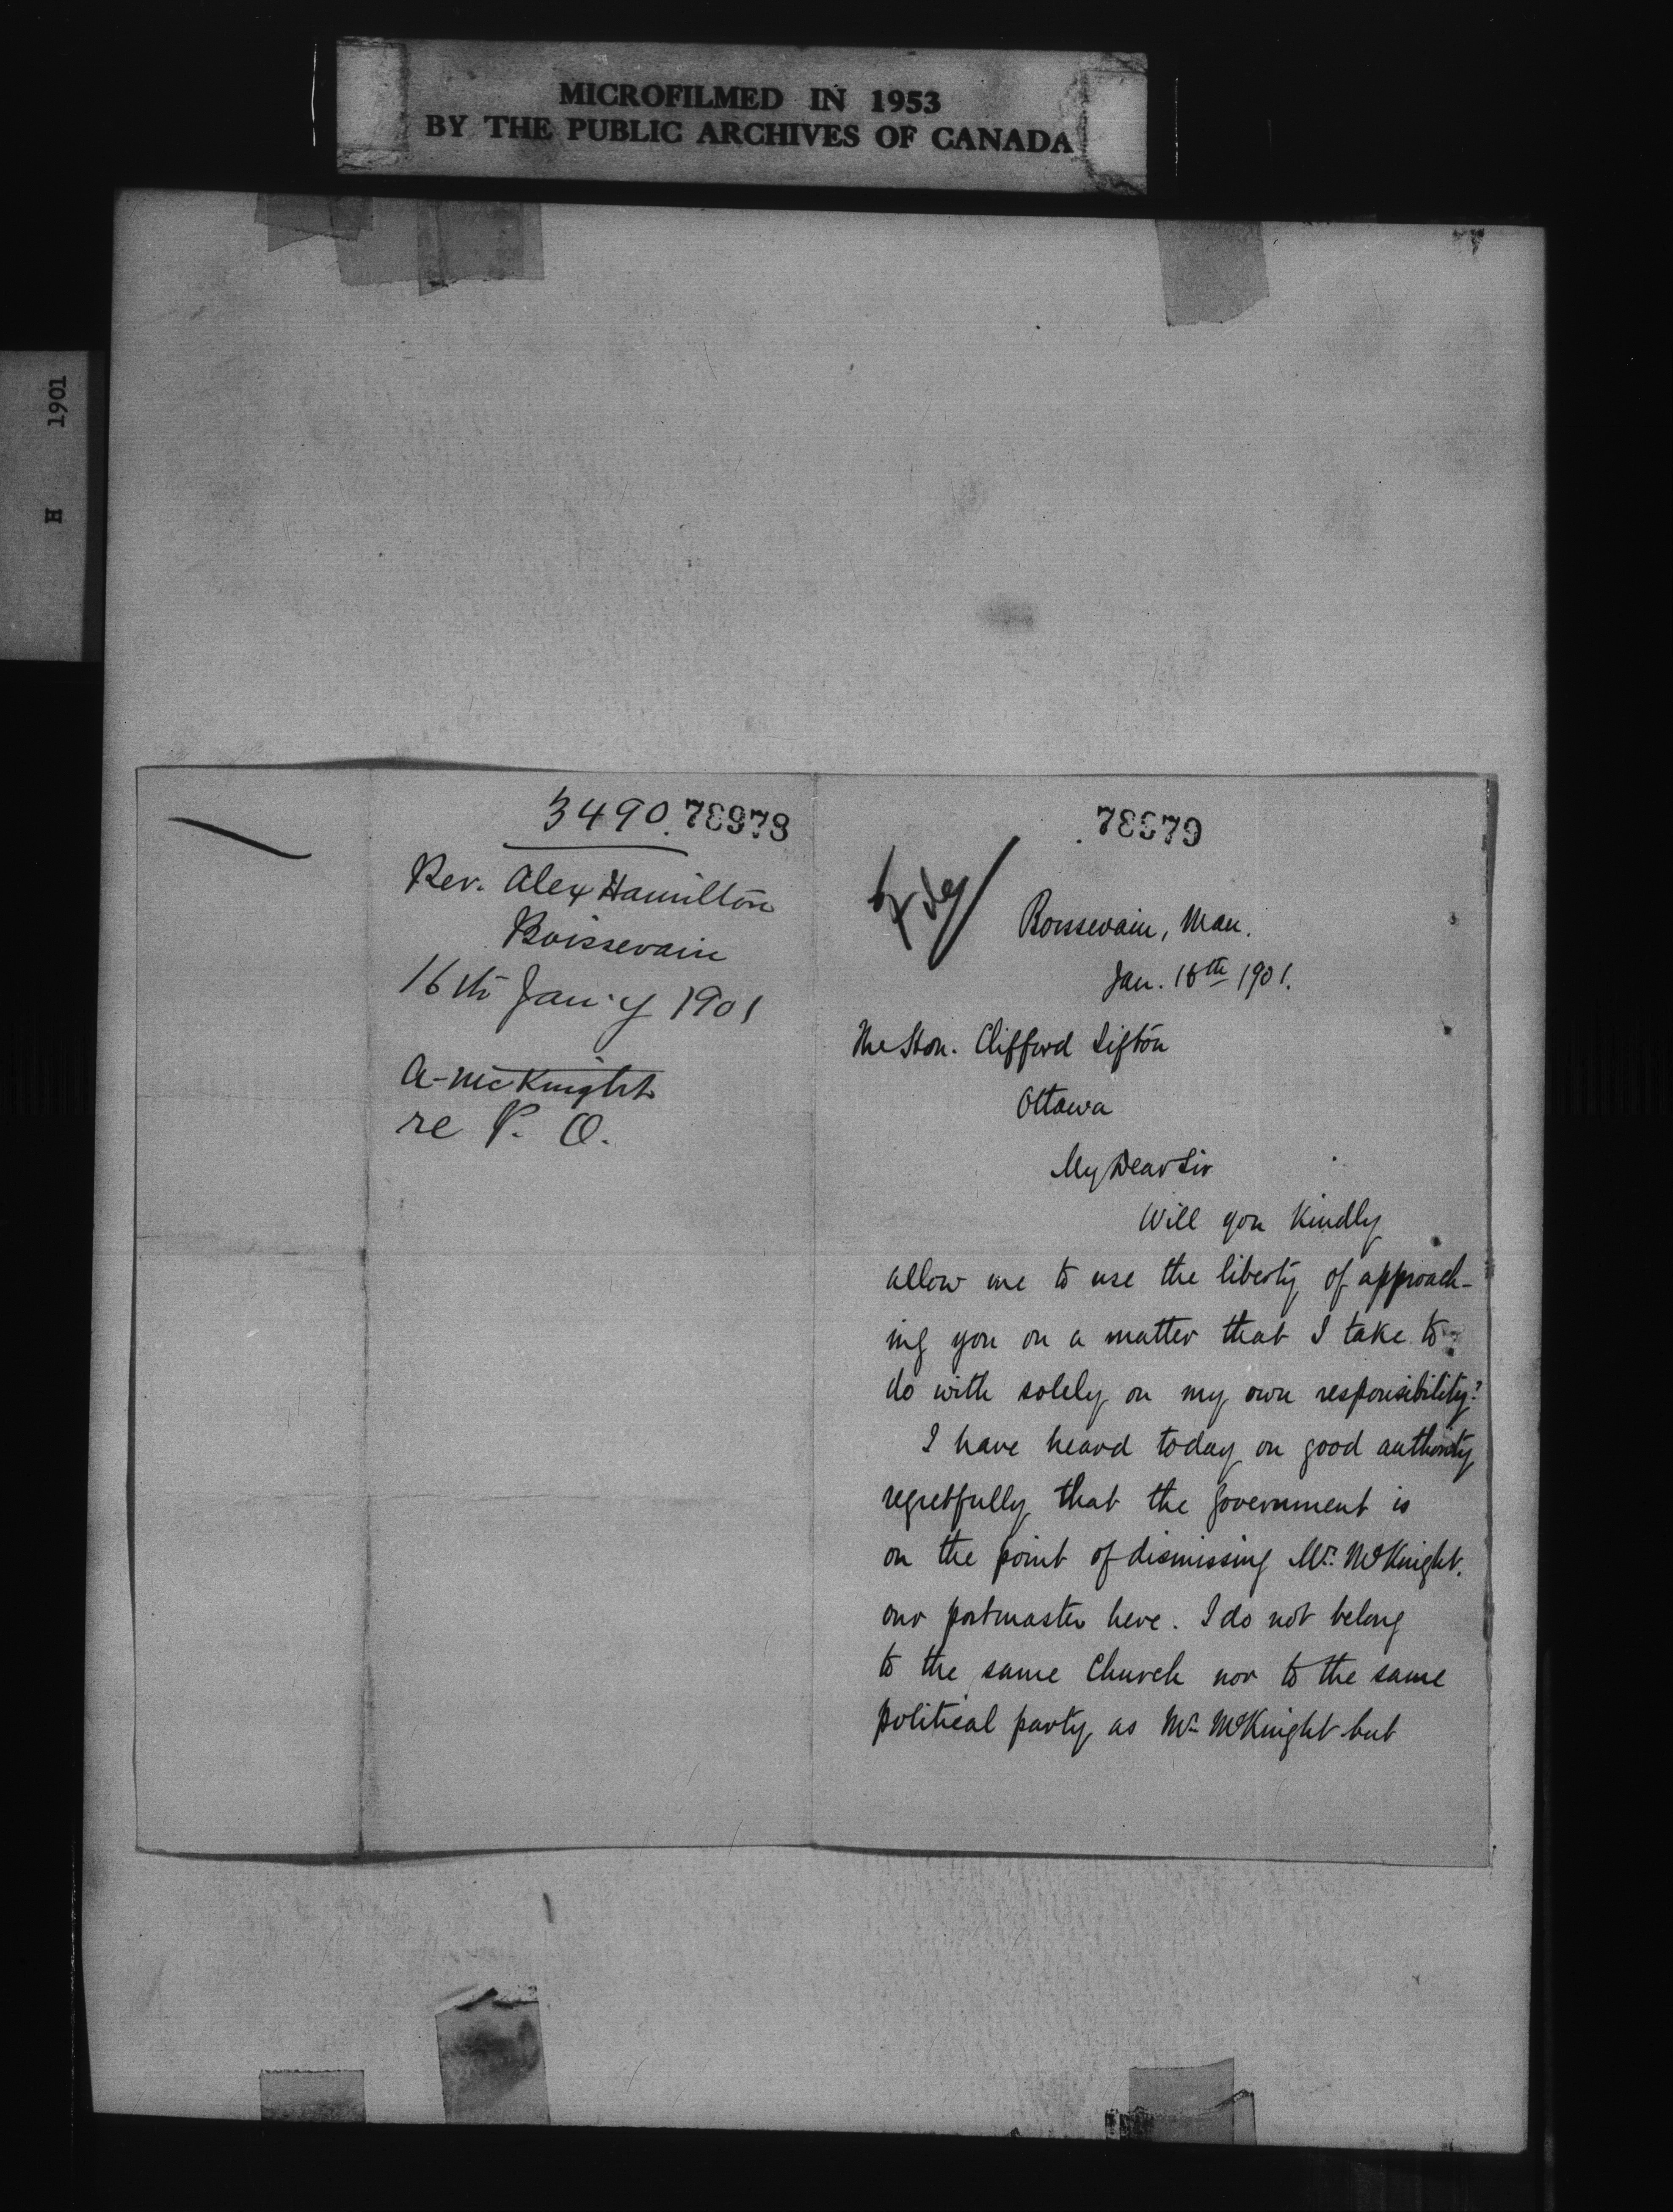 MICROFILMED IN 1953
BY THE PUBLIC ARCHIVES OF CANADA
H 1901
3490. 78978
Rev. Alex Hamilton
Boissevain
16th Jan'y 1901
A. McKnight
re P. O.
78979
Boissevain, Man.
Jan. 16th 1901.
The Hon. Clifford Sifton
Ottawa
My Dear Sir
Will you kindly
allow me to use the liberty of approach-
ing you on a matter that I take to
do with solely on my own responsibility?
I have heard today on good authority
regretfully that the Government is
on the point of dismissing Mr. McKnight.
our postmaster here. I do not belong
to the same Church nor to the same
political party as Mr McKnight but